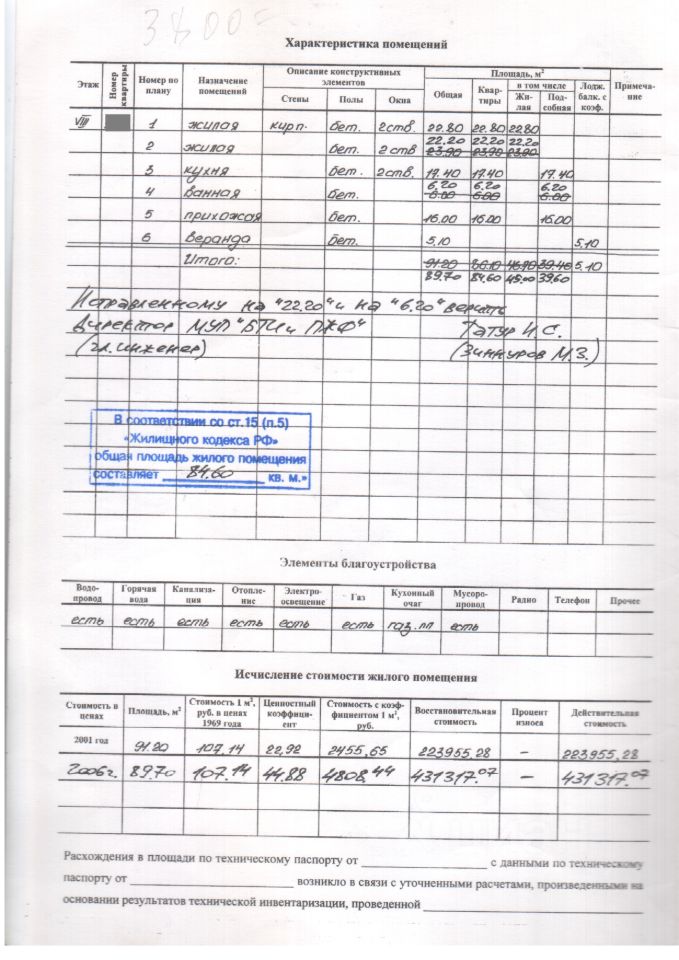 3800=
Характеристика помещений
Этаж | Номер квартиры | Номер по плану | Назначение помещений | Описание конструктивных элементов | Площадь, м² | Лодж. балк. с коэф. | Примечание
Стены | Полы | Окна | Общая | Квартиры | в том числе
Жилая | Подсобная
VIII | 1 | жилая | кирп. | бет. | 2ств. | 22.80 | 22.80 | 22.80
22.20 | 22.20 | 22.20
2 | жилая | бет. | 2ств | 23.90 | 23.90 | 23.90
3 | кухня | бет. | 2ств. | 17.40 | 17.40
6.20 | 6.20 | 6.20
4 | ванная | бет. | 6.00 | 6.00 | 6.00
5 | прихожая | бет. | 16.00 | 16.00 | 16.00
6 | веранда | бет. | 5.10 | 5.10
Итого: | 91.20 | 86.10 | 46.70 | 39.40 | 5.10
89.70 | 84.60 | 45.00 | 39.60
Исправленному на "22.20" и на "6.20" верить
Директор МУП "БТИ и ПЖФ" Татур И.С.
(гл.инженер) (Зиннуров М.З.)
В соответствии со ст.15 (п.5)
«Жилищного кодекса РФ»
общая площадь жилого помещения
составляет 84.60 кв. м.»
Элементы благоустройства
Водопровод | Горячая вода | Канализация | Отопление | Электроосвещение | Газ | Кухонный очаг | Мусоропровод | Радио | Телефон | Прочее
есть | есть | есть | есть | есть | есть | газ.пл | есть
Исчисление стоимости жилого помещения
Стоимость в ценах | Площадь, м² | Стоимость 1 м², руб. в ценах 1969 года | Ценностный коэффициент | Стоимость с коэффициентом 1 м², руб. | Восстановительная стоимость | Процент износа | Действительная стоимость
2001 год | 91.20 | 107.14 | 22,92 | 2455,65 | 223955,28 | – | 223955,28
2006г. | 89.70 | 107.14 | 44.88 | 4808.44 | 431317.07 | – | 431317.07
Расхождения в площади по техническому паспорту от ____________ с данными по техническому
паспорту от ____________ возникло в связи с уточненными расчетами, произведенными на
основании результатов технической инвентаризации, проведенной ____________